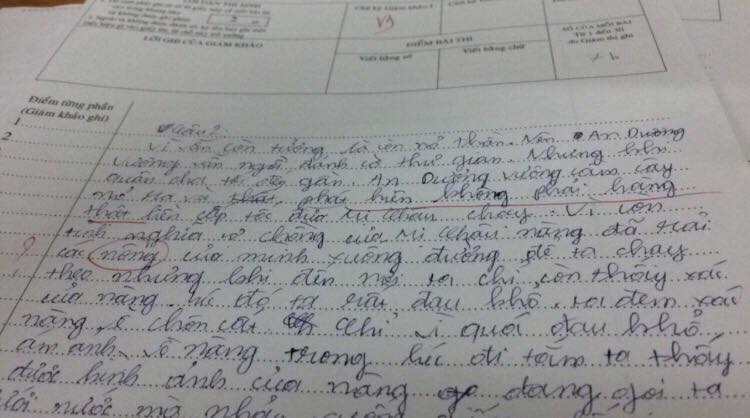 LỜI GHI CỦA GIÁM KHẢO
ĐIỂM BÀI THI
Viết bằng số
Viết bằng chữ
SỐ CỦA MỖI BÀI
Từ 1 đến 30
do Giám thị ghi
Điểm từng phần
(Giám khảo ghi)
1
2
Câu 2:
Vì vẫn còn tưởng là còn nỏ thần. Nên An Dương
Vương vẫn ngồi đánh cờ thư quan. Nhưng khi
quân nhà đến gần. An Dương Vương cầm cây
nỏ kia và phát hiện không phải hàng
thật liền cấp tốc đưa Mị Châu chạy. Vì còn
tình nghĩa vợ chồng của Mị Châu nàng đã rải
các nông của mình xuống đường để ta chạy
theo nhưng khi đến nơi ta chỉ còn thấy xác
của nàng. lúc đó ta rất đau khổ. ta đem xác
nàng chôn cất. Vì quá đau khổ
ám ảnh về nàng trong lúc đi tắm ta thấy
được hình ảnh của nàng đang gọi ta